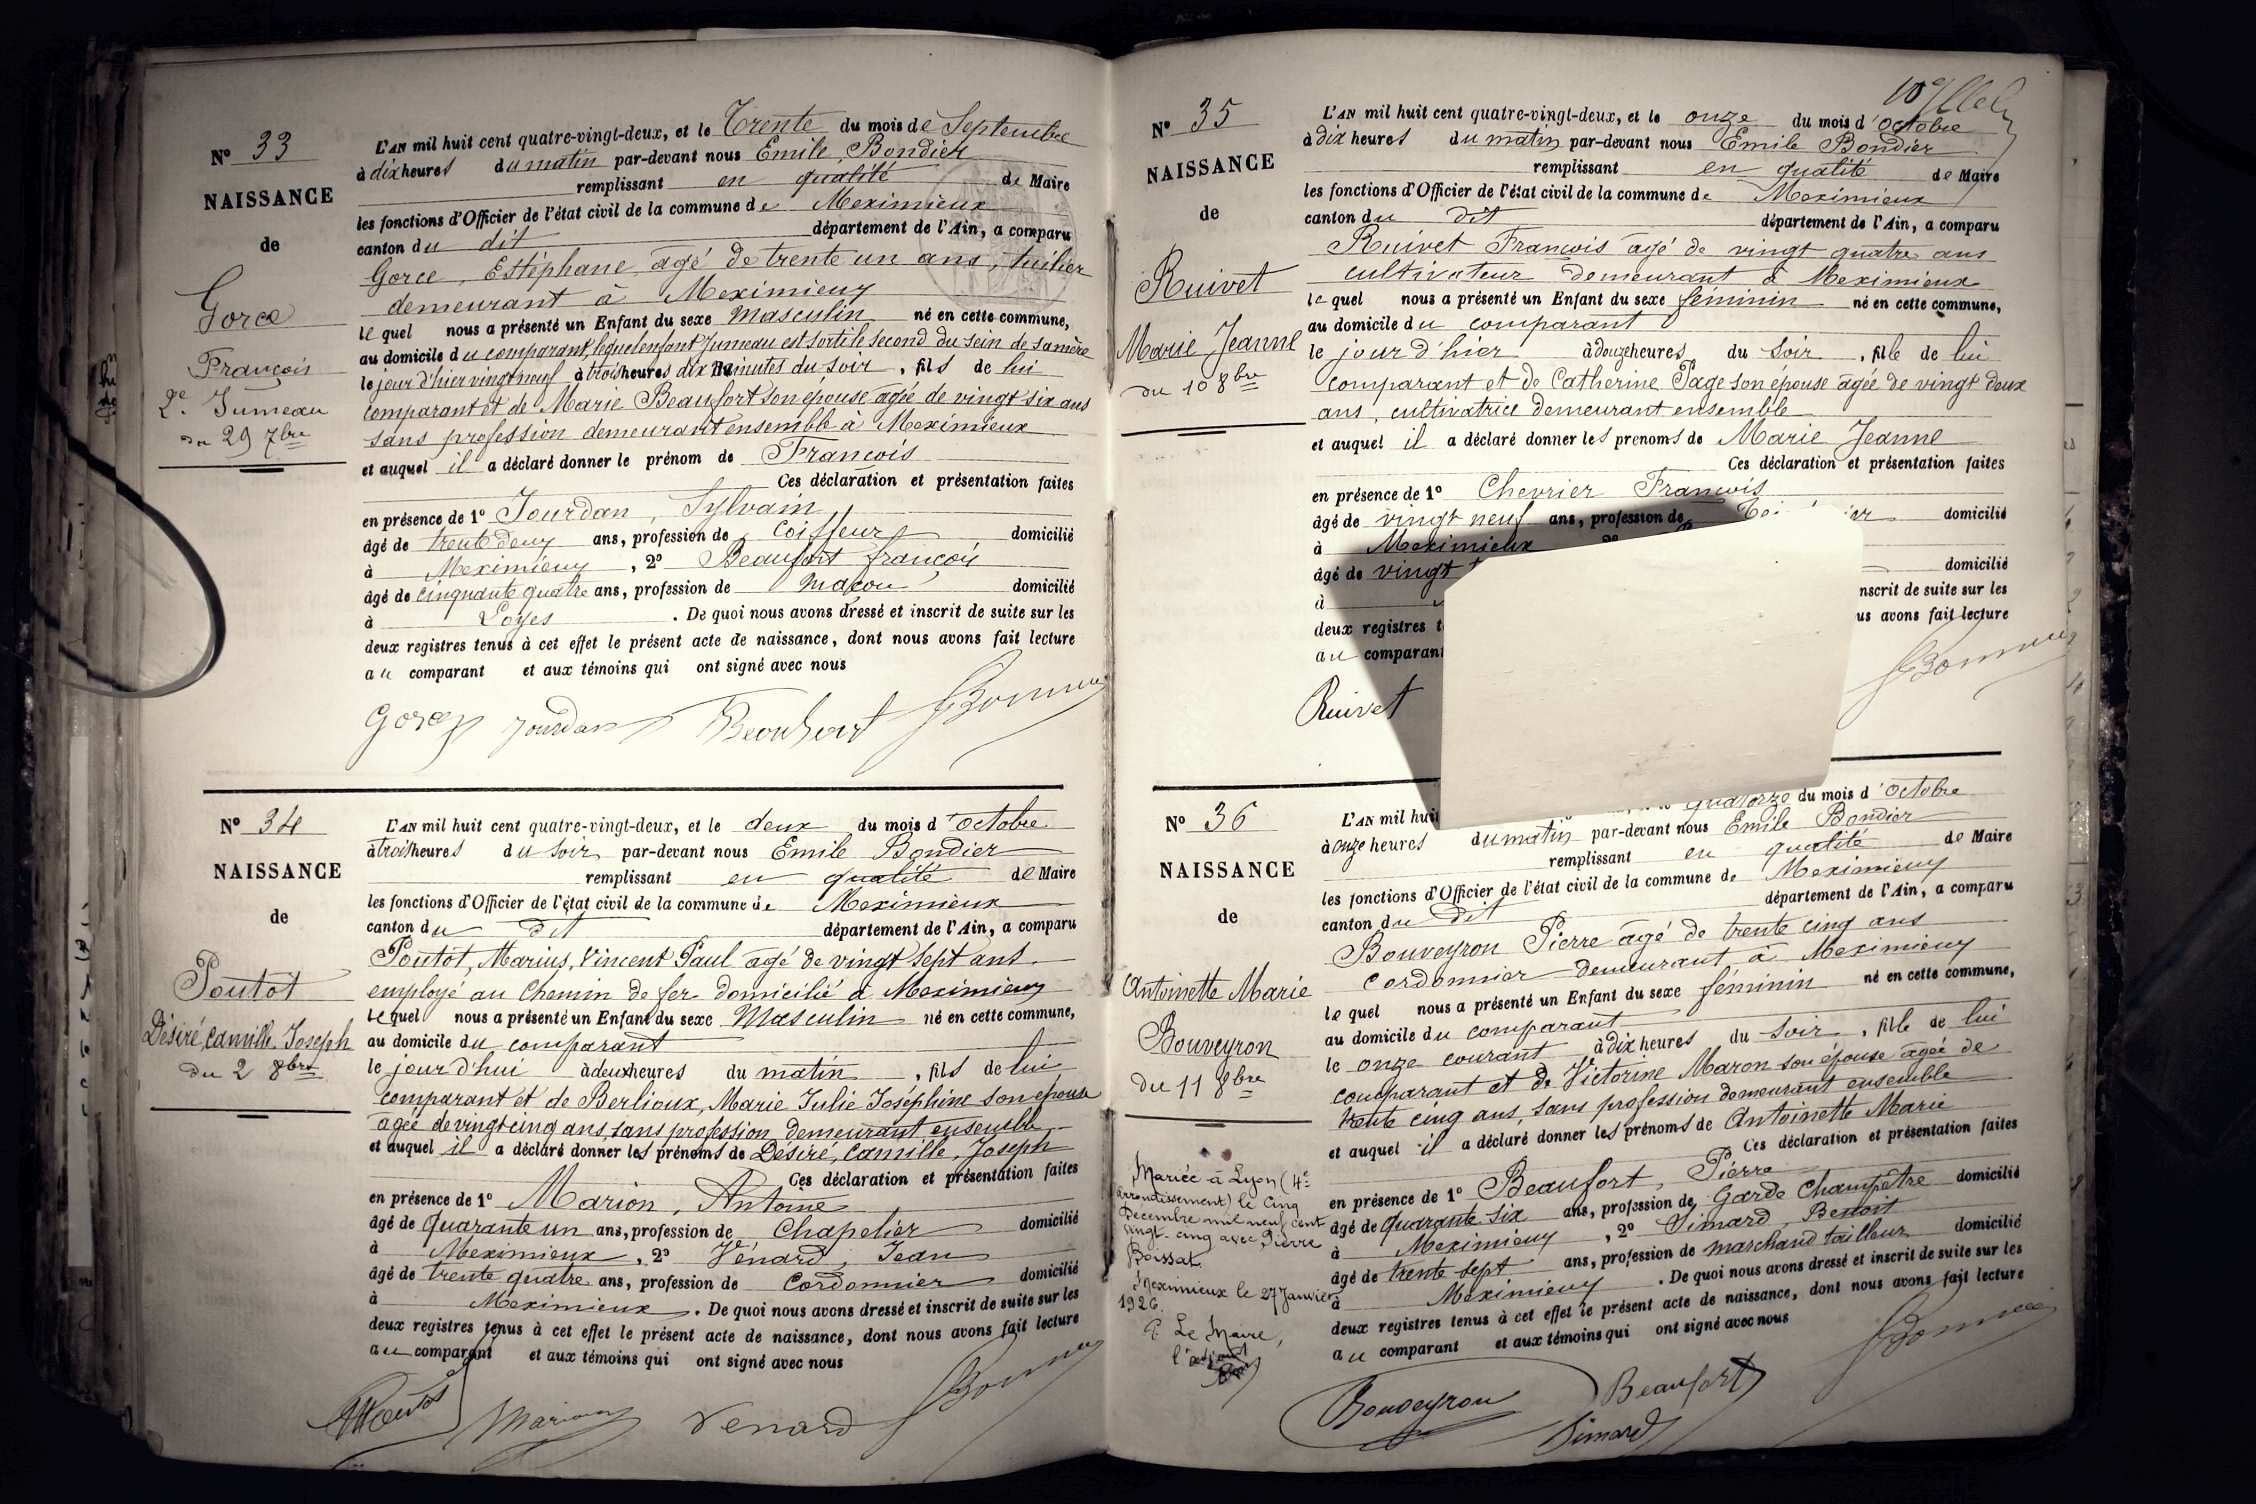 N° 33
NAISSANCE
de
Gorce
François
2e Jumeau
du 29 7bre
L'AN mil huit cent quatre-vingt-deux, et le Trente du mois de Septembre
à dix heures du matin par-devant nous Emile Bondier
remplissant en qualité de Maire
les fonctions d'Officier de l'état civil de la commune de Meximieux
canton du dit département de l'Ain, a comparu
Gorce, Estéphane agé de trente un ans, tuilier
demeurant à Meximieux
lequel nous a présenté un Enfant du sexe Masculin né en cette commune,
au domicile du comparant, lequel enfant Jumeau est sorti le second du sein de sa mère
le jour d'hier vingt neuf à trois heures dix minutes du soir, fils de lui
comparant et de Marie Beaufort son épouse agée de vingt six ans
sans profession demeurant ensemble à Meximieux
et auquel il a déclaré donner le prénom de François
Ces déclaration et présentation faites
en présence de 1° Jourdan, Sylvain
âgé de trente deux ans, profession de Coiffeur domicilié
à Meximieux, 2° Beaufort françois
âgé de cinquante quatre ans, profession de maçon domicilié
à Loyes. De quoi nous avons dressé et inscrit de suite sur les
deux registres tenus à cet effet le présent acte de naissance, dont nous avons fait lecture
au comparant et aux témoins qui ont signé avec nous
Gorce Jourdan Beaufort
N° 34
NAISSANCE
de
Poutot
Désiré, Camille Joseph
du 2 8bre
L'AN mil huit cent quatre-vingt-deux, et le deux du mois d'octobre
à trois heures du soir par-devant nous Emile Bondier
remplissant en qualité de Maire
les fonctions d'Officier de l'état civil de la commune de Meximieux
canton du dit département de l'Ain, a comparu
Poutot, Marius, Vincent Paul agé de vingt sept ans
employé au Chemin de fer domicilié à Meximieux
lequel nous a présenté un Enfant du sexe Masculin né en cette commune,
au domicile du comparant
le jour d'hui à deux heures du matin, fils de lui
comparant et de Berlioux, Marie Julie Joséphine son épouse
agée de vingt cinq ans, sans profession demeurant ensemble
et auquel il a déclaré donner les prénoms de Désiré, Camille, Joseph
Ces déclaration et présentation faites
en présence de 1° Marion, Antoine
âgé de quarante un ans, profession de Chapelier domicilié
à Meximieux, 2° Vénard, Jean
âgé de trente quatre ans, profession de Cordonnier domicilié
à Meximieux. De quoi nous avons dressé et inscrit de suite sur les
deux registres tenus à cet effet le présent acte de naissance, dont nous avons fait lecture
au comparant et aux témoins qui ont signé avec nous
Marion Venard
N° 35
NAISSANCE
de
Ruivet
Marie Jeanne
du 10 8bre
L'AN mil huit cent quatre-vingt-deux, et le onze du mois d'octobre
à dix heures du matin par-devant nous Emile Bondier
remplissant en qualité de Maire
les fonctions d'Officier de l'état civil de la commune de Meximieux
canton du dit département de l'Ain, a comparu
Ruivet François agé de vingt quatre ans
cultivateur demeurant à Meximieux
lequel nous a présenté un Enfant du sexe féminin né en cette commune,
au domicile du comparant
le jour d'hier à douze heures du soir, fille de lui
comparant et de Catherine Page son épouse agée de vingt deux
ans, cultivatrice demeurant ensemble
et auquel il a déclaré donner les prenoms de Marie Jeanne
Ces déclaration et présentation faites
en présence de 1° Chevrier François
âgé de vingt neuf ans, profession de domicilié
à Meximieux 2°
âgé de vingt domicilié
à nscrit de suite sur les
deux registres t us avons fait lecture
au comparant
Ruivet
N° 36
NAISSANCE
de
Antoinette Marie
Bouveyron
du 11 8bre
Mariée à Lyon (4e
arrondissement) le cinq
Décembre mil neuf cent
vingt-cinq avec Pierre
Boissat.
Meximieux le 27 Janvier
1926.
P. Le Maire,
l'adjoint
L'AN mil hui quatorze du mois d'octobre
à onze heures du matin par-devant nous Emile Bondier
remplissant en qualité de Maire
les fonctions d'Officier de l'état civil de la commune de Meximieux
canton du dit département de l'Ain, a comparu
Bouveyron Pierre agé de trente cinq ans
Cordonnier demeurant à Meximieux
lequel nous a présenté un Enfant du sexe féminin né en cette commune,
au domicile du comparant
le onze courant à dix heures du soir, fille de lui
comparant et de Victorine Maron son épouse agée de
trente cinq ans, sans profession demeurant ensemble
et auquel il a déclaré donner les prénoms de Antoinette Marie
Ces déclaration et présentation faites
en présence de 1° Beaufort, Pierre
âgé de quarante six ans, profession de Garde Champêtre domicilié
à Meximieux, 2° Simard, Benoit
âgé de trente sept ans, profession de marchand tailleur domicilié
à Meximieux. De quoi nous avons dressé et inscrit de suite sur les
deux registres tenus à cet effet le présent acte de naissance, dont nous avons fait lecture
au comparant et aux témoins qui ont signé avec nous
Bouveyron Beaufort
Simard